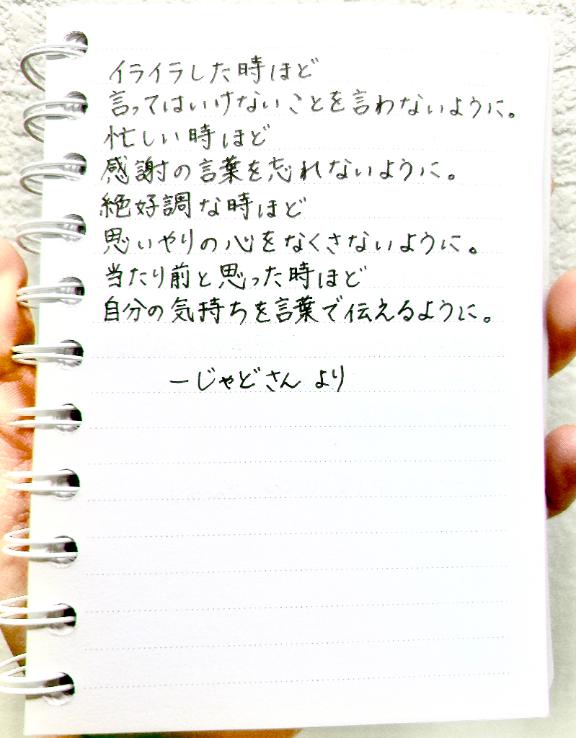 イライラした時ほど
言ってはいけないことを言わないように。
忙しい時ほど
感謝の言葉を忘れないように。
絶好調な時ほど
思いやりの心をなくさないように。
当たり前と思った時ほど
自分の気持ちを言葉で伝えるように。
ーじゃどさん より